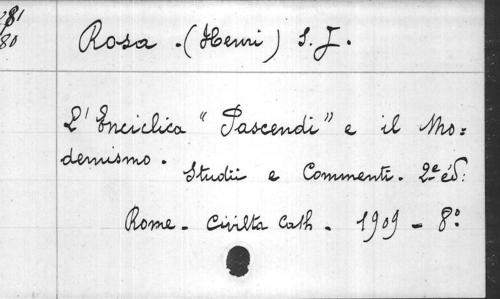 281
80
Rosa . (Henri) S. J.
L'Enciclica "Pascendi" e il Mo=
dernismo.
Studii e Commenti. 2e éd:
Rome. Civilta Cath. 1909 - 8°